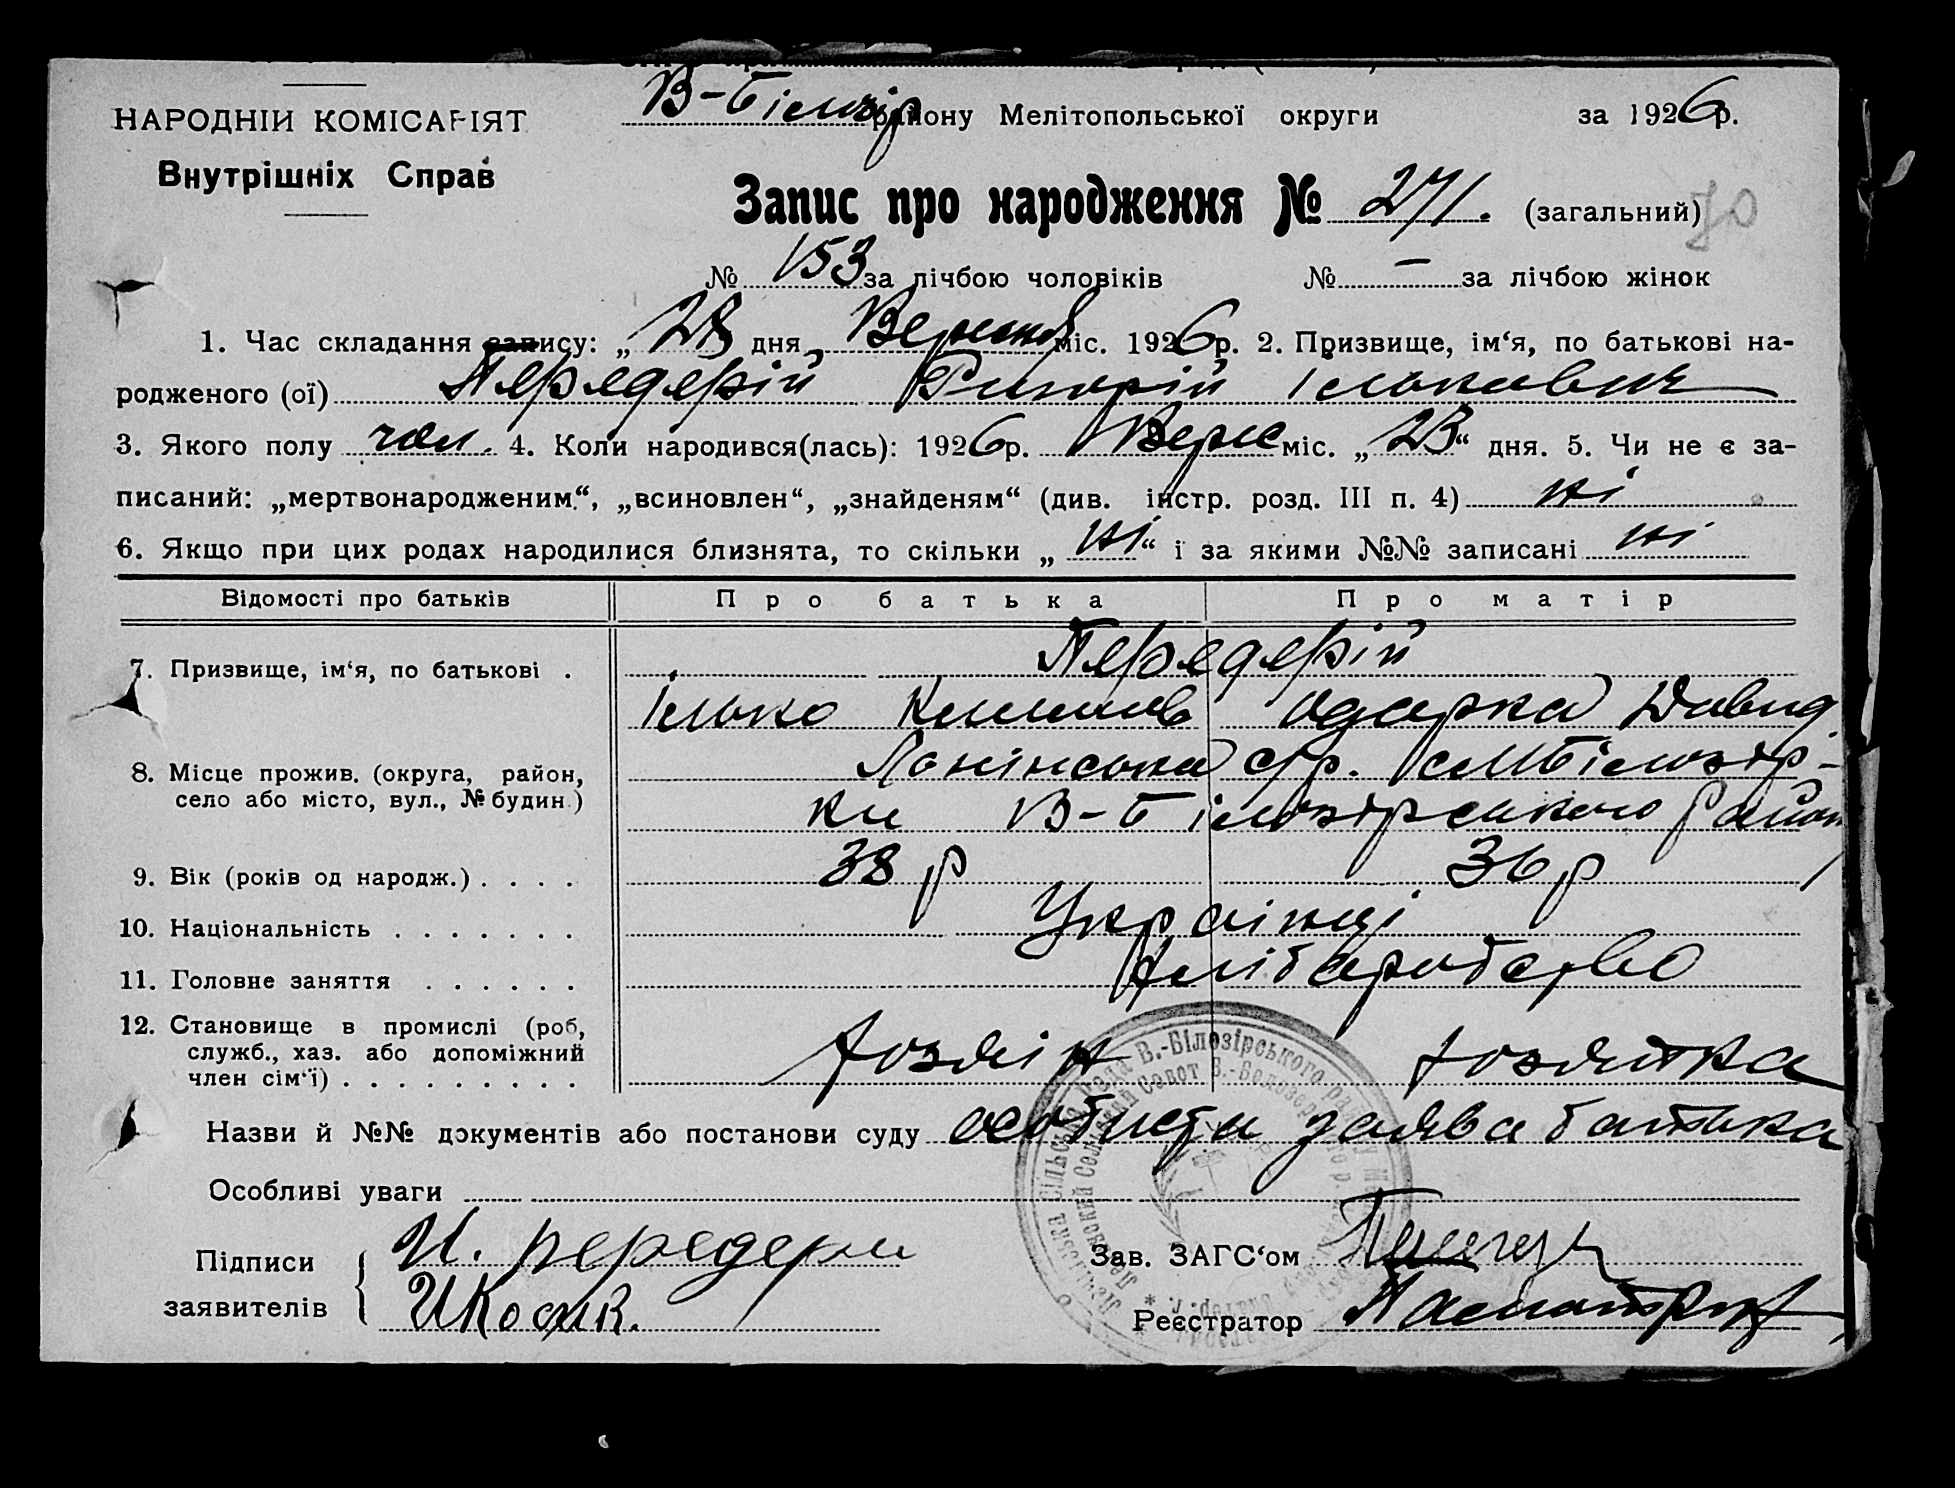 НАРОДНІЙ КОМІСАРІЯТ
Внутрішніх Справ
В-Білозір району Мелітопольської округи за 1926 р.
Запис про народження № 271. (загальний) 70
№ 153 за лічбою чоловіків № — за лічбою жінок
1. Час складання запису: „ 28 дня Вересня міс. 1926 р. 2. Призвище, ім‘я, по батькові на-
родженого (ої) Передерій Григорій Ількович
3. Якого полу чол. 4. Коли народився(лась): 1926 р. Верес міс. „ 23 “ дня. 5. Чи не є за-
писаний: „мертвонародженим“, „всиновлен“, „знайденям“ (див. інстр. розд. III п. 4) ні
6. Якщо при цих родах народилися близнята, то скільки „ ні “ і за якими №№ записані ні
Відомості про батьків Про батька Про матір
7. Призвище, ім‘я, по батькові . Передерій
Ілько Климов Одарка Давид.
8. Місце прожив. (округа, район, село або місто, вул., № будин.) Ленінська с/р. Білозір-
ки В-Білозірського район
9. Вік (років од народж.) . . . . 38 р 36 р
10. Національність . . . . . . . Українці
11. Головне заняття . . . . . . хліборобство
12. Становище в промислі (роб, служб., хаз. або допоміжний член сім‘ї) . . . . . . . . . . хозяїн хозяйка
Назви й №№ документів або постанови суду особиста заява батька
Особливі уваги
Підписи заявителів И. передери
Зав. ЗАГС‘ом
Реєстратор
Сільська Рада В.-Білозірського району